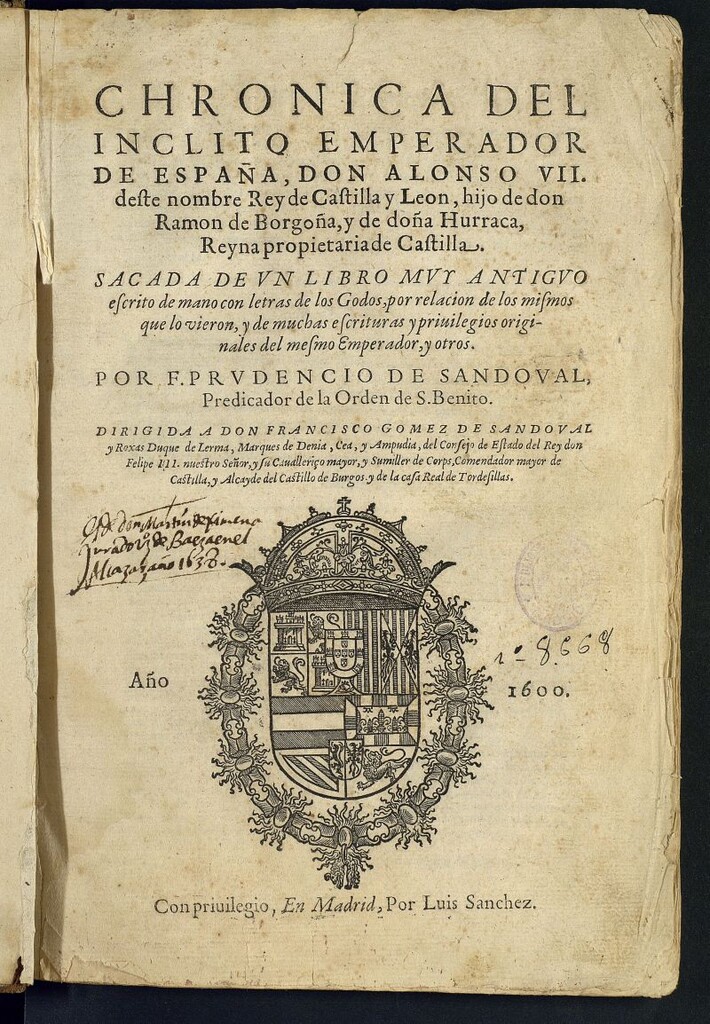 CHRONICA DEL
INCLITO EMPERADOR
DE ESPAÑA, DON ALONSO VII.
deſte nombre Rey de Caſtilla y Leon, hijo de don
Ramon de Borgoña, y de doña Hurraca,
Reyna propietaria de Caſtilla.
SACADA DE VN LIBRO MVY ANTIGVO
eſcrito de mano con letras de los Godos, por relacion de los miſmos
que lo vieron, y de muchas eſcrituras y priuilegios origi-
nales del meſmo Emperador, y otros.
POR F. PRVDENCIO DE SANDOVAL,
Predicador de la Orden de S. Benito.
DIRIGIDA A DON FRANCISCO GOMEZ DE SANDOVAL
y Roxas Duque de Lerma, Marques de Denia, Cea, y Ampudia, del Conſejo de Eſtado del Rey don
Felipe III. nueſtro Señor, y ſu Cauallerıço mayor, y Sumiller de Corps, Comendador mayor de
Caſtilla, y Alcayde del Caſtillo de Burgos y de la caſa Real de Tordeſillas.
de don Martin de Ximena
Jurado de Baeza en el
Alcazar año 1638.
nº 8.668
Año 1600.
Con priuilegio, En Madrid, Por Luis Sanchez.